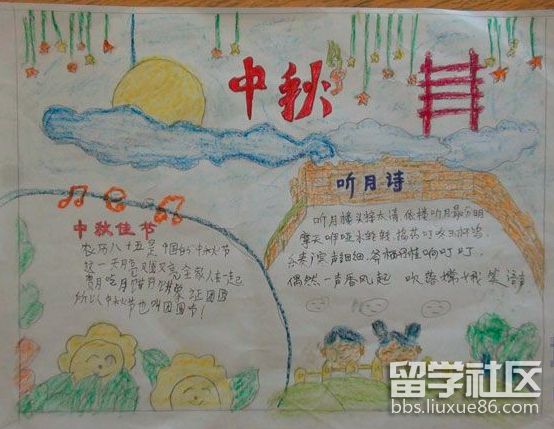 中秋
听月诗
听月楼头接太清 依楼听月最分明
摩天咿哑冰轮转 捣药叮咚玉杵鸣
乐奏广寒声细细 斧柯丹桂响叮叮
偶然一声香风起 吹落嫦娥笑语声
中秋佳节
农历八十五是中国的中秋节
这一天月亮又圆又亮 全家人在一起
赏月吃月饼
所以中秋节也叫团圆节!
留学社区
bbs.liuxue86.com